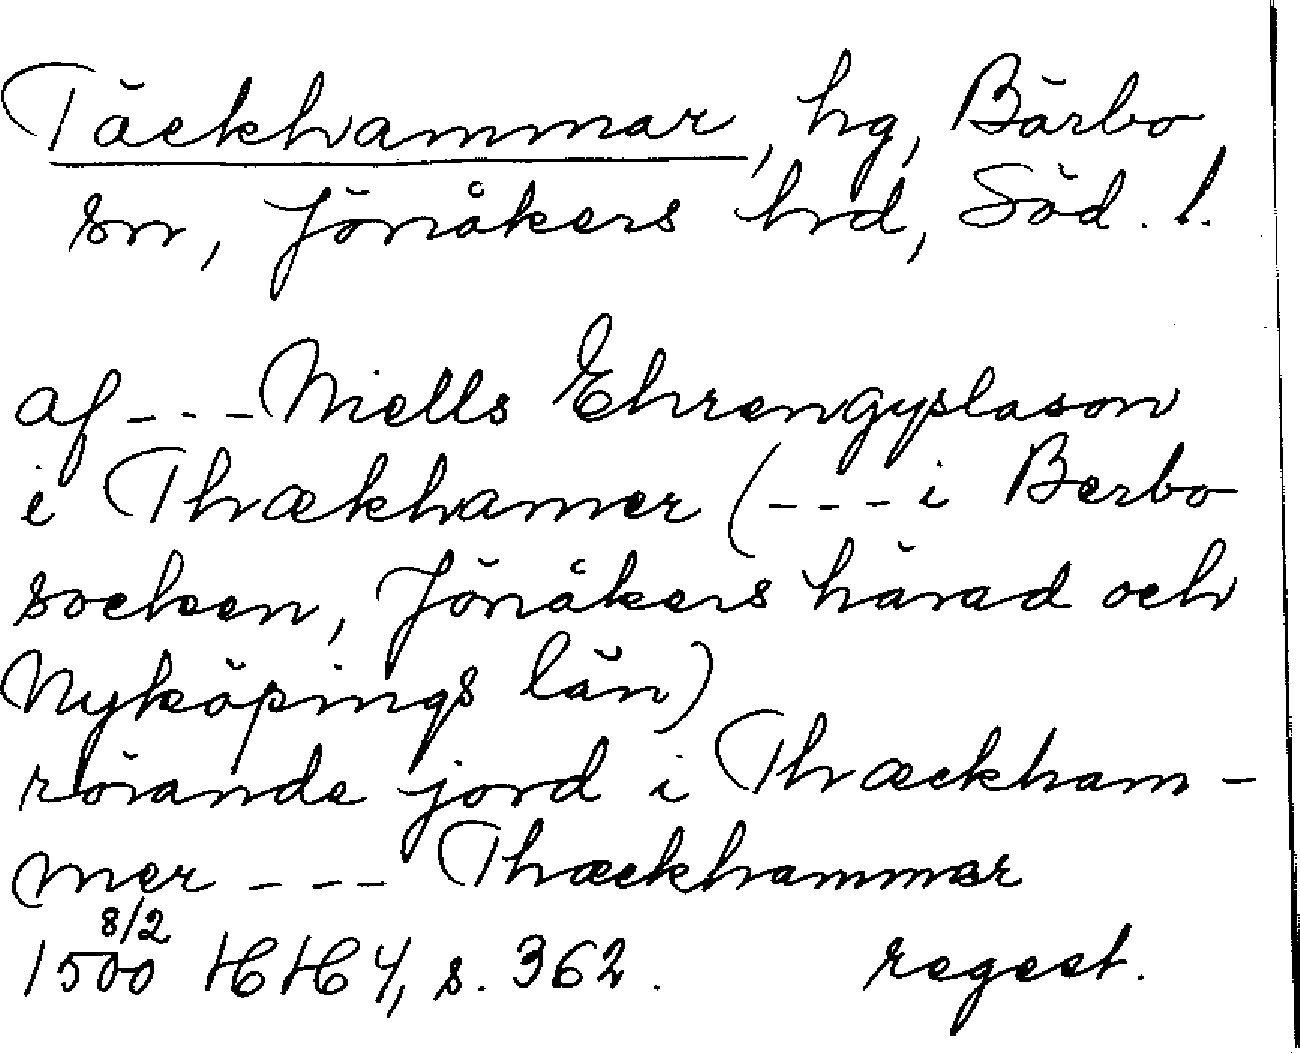 Täckhammar, hg, Bärbo
sn, Jönåkers hrd, Söd. l.
af --- Niells Ehrengyslason
i Thækhamer (--- i Berbo
socken, Jönåkers härad och
Nyköpings län)
rörande jord i Thæckham-
mer --- Thæckhammer
8/2
1500 HH 4, s. 362. regest.